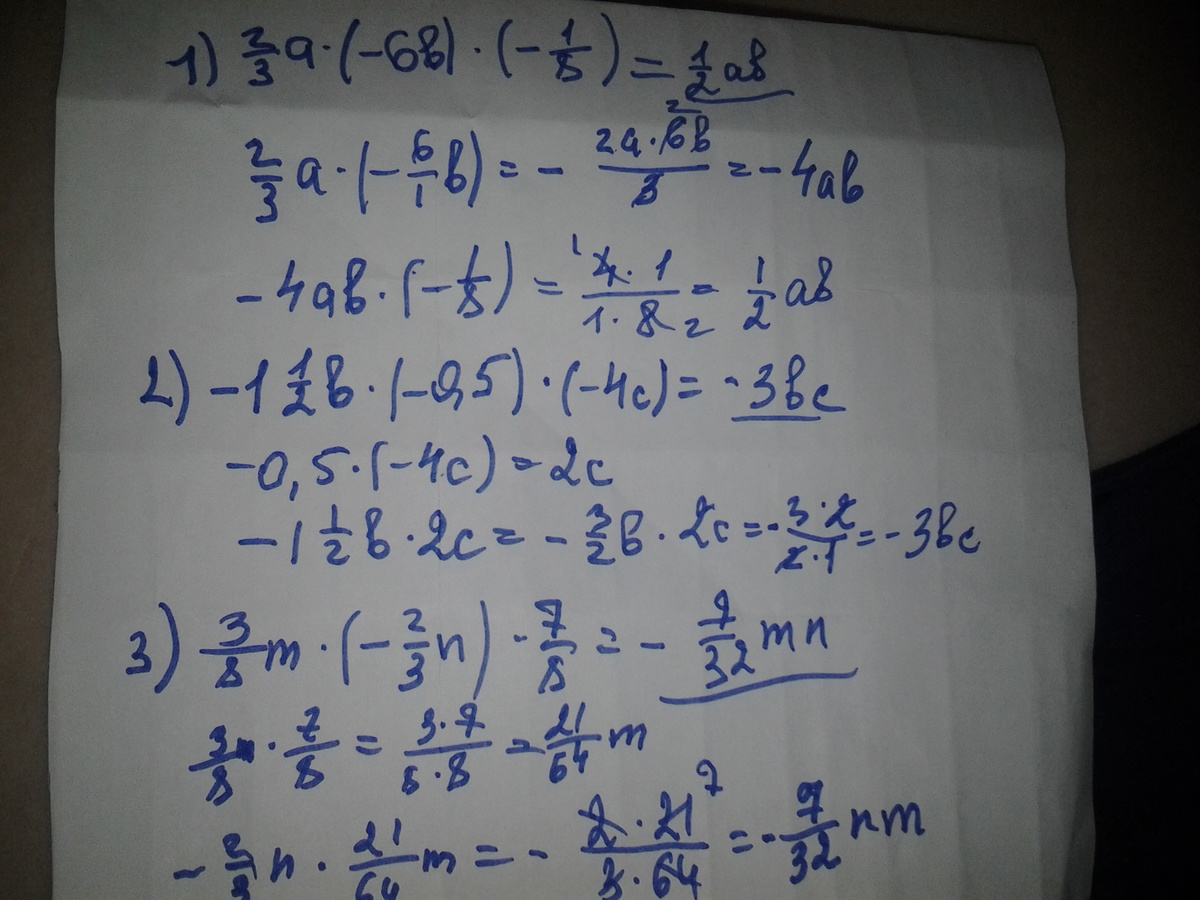 1) 2/3 a · (-6b) · (-1/8) = 1/2 ab
2/3 a · (-6/1 b) = - 2a·6b²/3 = -4ab
-4ab · (-1/8) = ¹4·1/1·8₂ = 1/2 ab
2) -1 1/2 b · (-0,5) · (-4c) = -3bc
-0,5 · (-4c) = 2c
-1 1/2 b · 2c = - 3/2 b · 2c = - 3·2/2·1 = -3bc
3) 3/8 m · (-2/3 n) · 7/8 = - 7/32 mn
3/8 m · 7/8 = 3·7/8·8 = 21/64 m
- 2/3 n · 21/64 m = - 2·21⁷/3·64 = - 7/32 nm